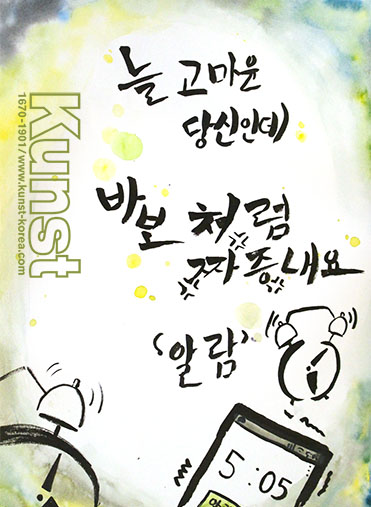 늘 고마운
당신인데
바보처럼
짜증내요
'알람'
5:05
Kunst
1670-1901/www.kunst-korea.com